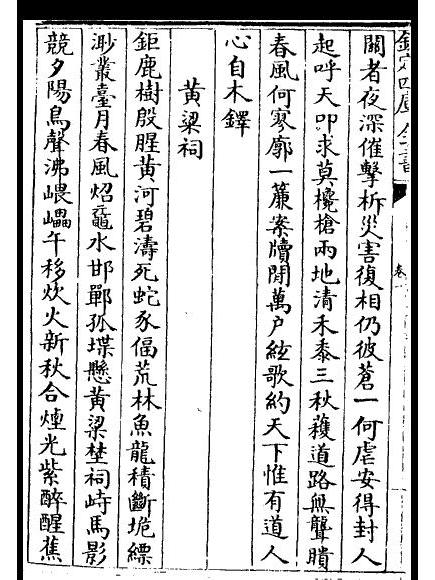 欽定四庫全書
卷
關者夜深催擊柝災害復相仍彼蒼一何虐安得封人
起呼天叩求莫欃槍兩地清禾黍三秋穫道路無聾瞶
春風何寥廓一簾案牘閒萬户絃歌約天下惟有道人
心自木鐸
黄粱祠
鉅鹿樹殷腥黄河碧濤死蛇豕偪荒林魚龍積斷垝縹
渺叢臺月春風炤黿水邯鄲孤堞懸黄粱埜祠峙馬影
競夕陽鳥聲沸嵔㠥午移炊火新秋合煙光紫醉醒蕉